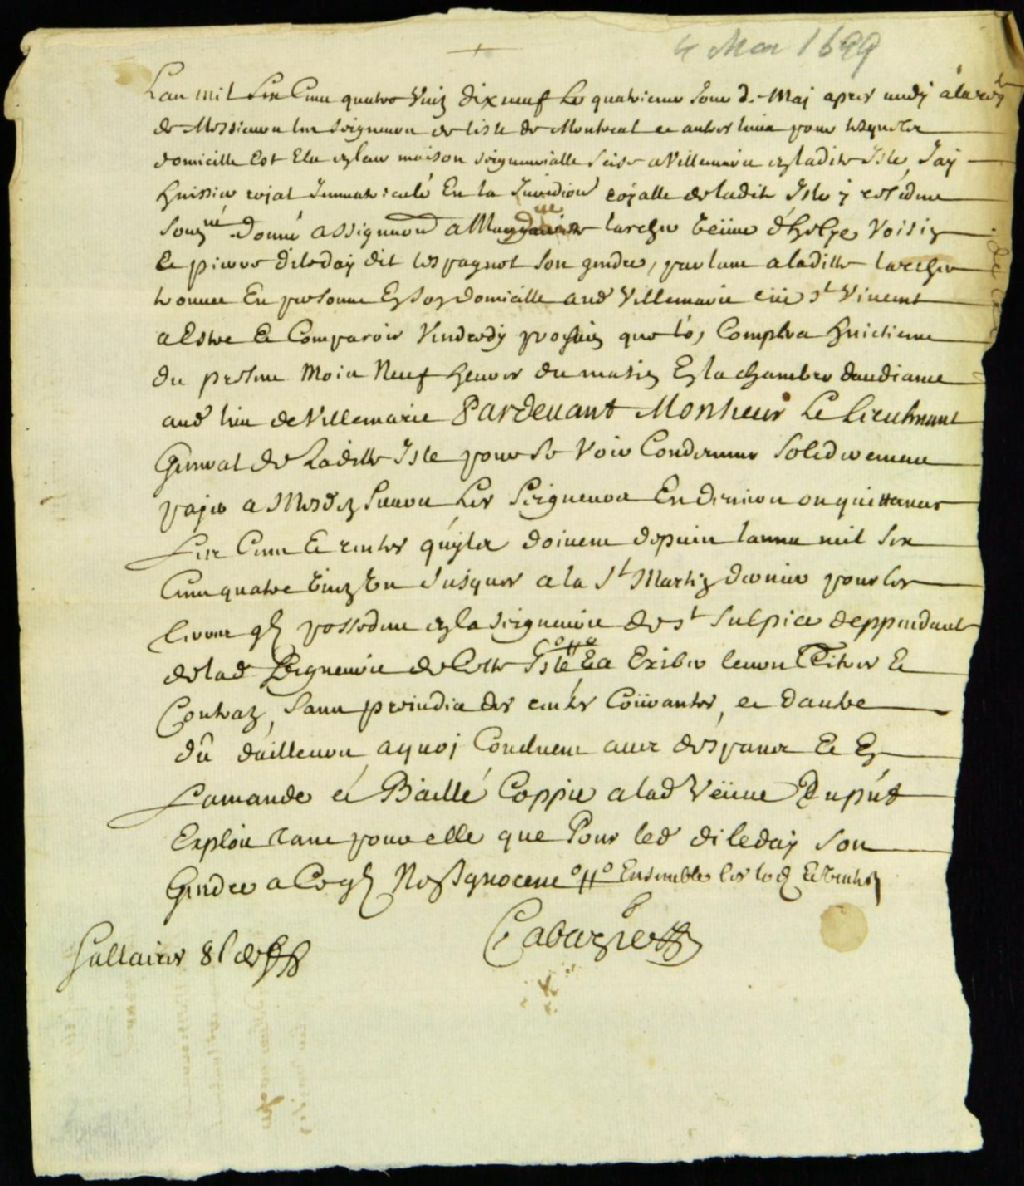 4 Mai 1699
Lan mil Six Cens quatre vingt dix neuf Le quatrieme Jour de May apres midy a la req.te
de Messieurs les Seigneurs de lisle de Montreal et autres lieux pour lesquels
domicille Est Elu en leur maison seigneurialle Seise a Villemarie en ladite Isle Jay
Huissier royal Immatriculé En la Juridion royalle de ladite Isle y residant
Souz.né donné assignaon a Marguerite larcher veuve d'
Et pierre dileday dit lespagnol son gendre, parlant a ladite larcher
trouvee En personne En son domicille aud Villemarie rue St Vincent
a Estre Et Comparoir Vendredy prochain que lon Comptra huictieme
du present Mois Neuf heures du matin En la chambre daudiance
aud lieu de Villemarie Pardevant Monsieur Le Lieutenant
General de Ladite Isle pour se Voir Condemner Solidairement
payer a Mesd. Sieurs Les Seigneurs En deniers ou quittances
Les Cens Et rentes quils doivent depuis lannee mil six
Cens quatre vingt Un Jusques a la St Martin derniere pour les
terres qls possedent en la seigneurie de St Sulpice deppendante
de lad Seigneurie de Cette Isle Et Exiber leurs Titres Et
Contratz, Sans prejudice des rentes Couvantes, et dautre
dû dailleurs a quoy Concluent avec despans Et En
Lamande et Baillé Coppie a lad Veuve Du pnt
Exploit Tant pour elle que Pour led dileday son
Gendre a Ce ql Nen Ignorent Ensemble les lods Et ventes
Cabazié
Sallaire